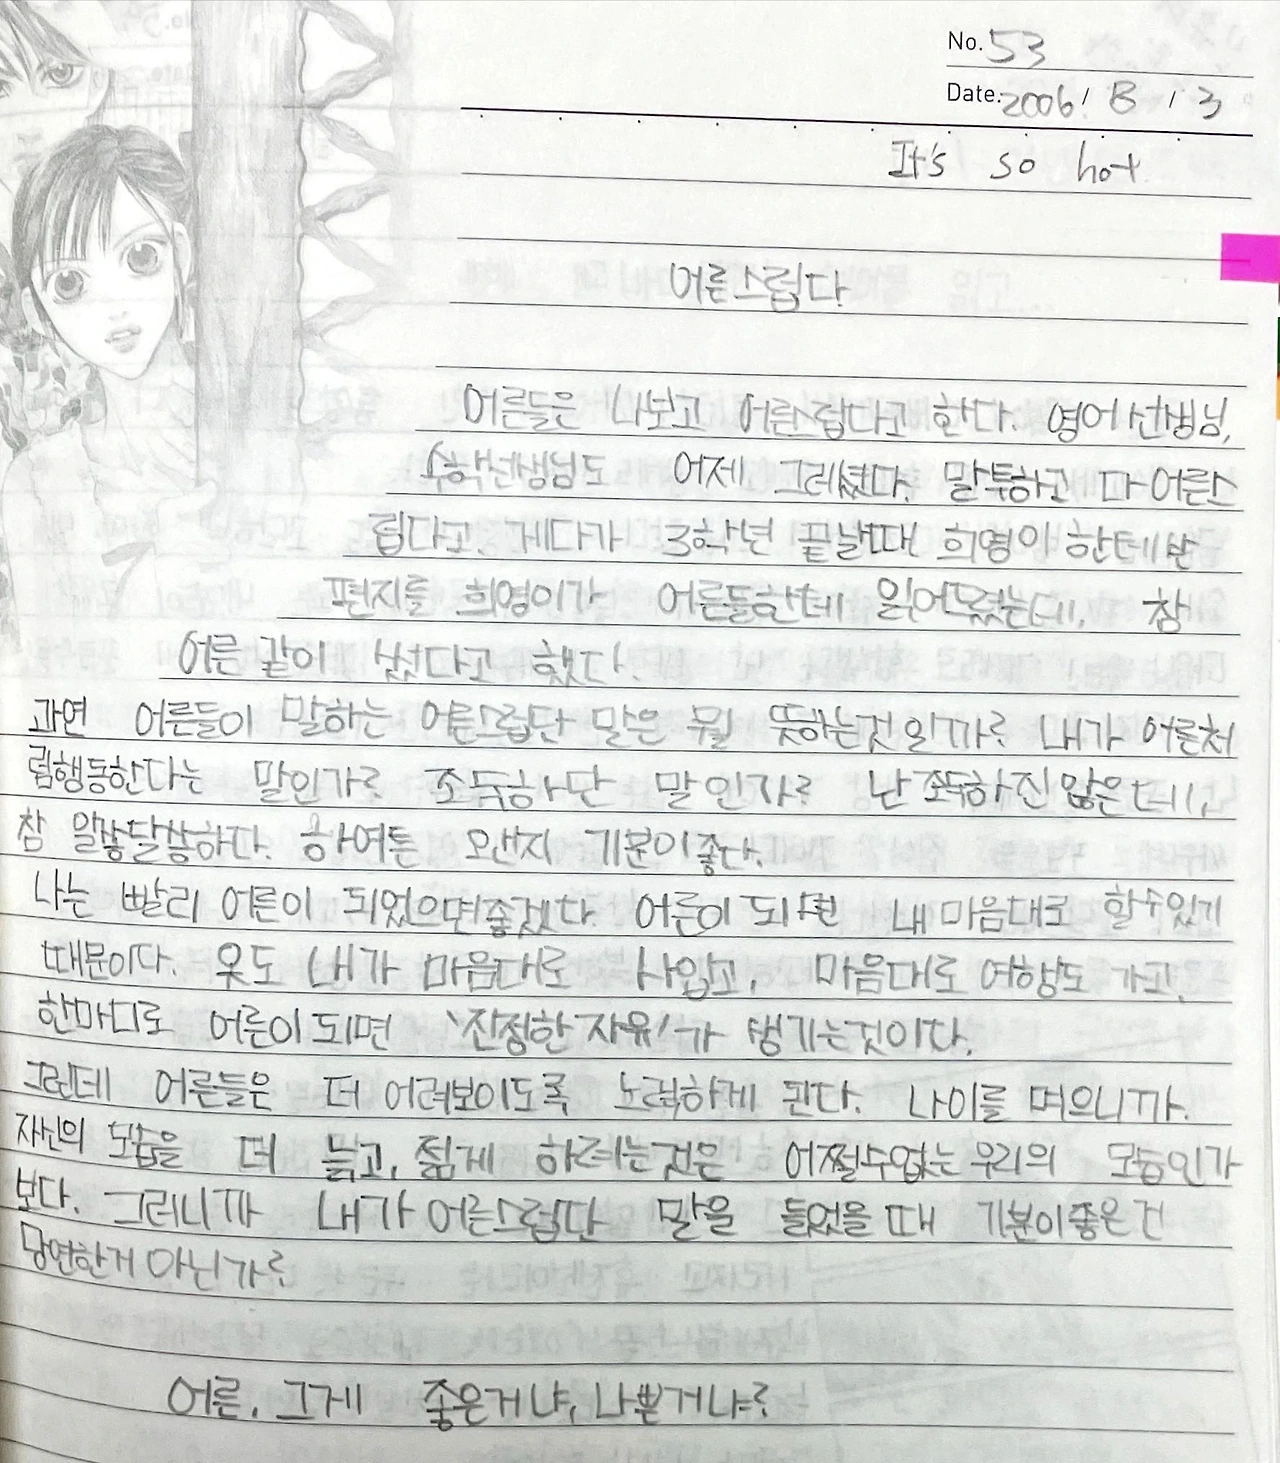 No. 53
Date. 2006 / 8 / 3
It's so hot
어른스럽다
어른들은 나보고 어른스럽다고 한다. 영어선생님,
수학선생님도 어제 그러셨다. 말투하고 다 어른스
럽다고. 게다가 3학년 끝날때 희영이 한테 쓴
편지를 희영이가 어른들한테 읽어드렸는데, 참
어른 같이 썼다고 했다.
과연 어른들이 말하는 어른스럽단 말은 뭘 뜻하는것일까? 내가 어른처
럼행동한다는 말인가? 조숙하단 말인가? 난 조숙하진않은데,
참 알쏭달쏭하다. 하여튼 왠지 기분이좋다.
나는 빨리 어른이 되었으면좋겠다. 어른이 되면 내마음대로 할수있기
때문이다. 옷도 내가 마음대로 사입고, 마음대로 여행도 가고,
한마디로 어른이 되면 '진정한 자유'가 생기는것이다.
그런데 어른들은 더 어려보이도록 노력하게 된다. 나이를 먹으니까.
자신의 모습을 더 늙고, 젊게 하려는것은 어쩔수없는 우리의 모습인가
보다. 그러니까 내가 어른스럽단 말을 들었을때 기분이좋은건
당연한거 아닌가?
어른, 그게 좋은거냐, 나쁜거냐?